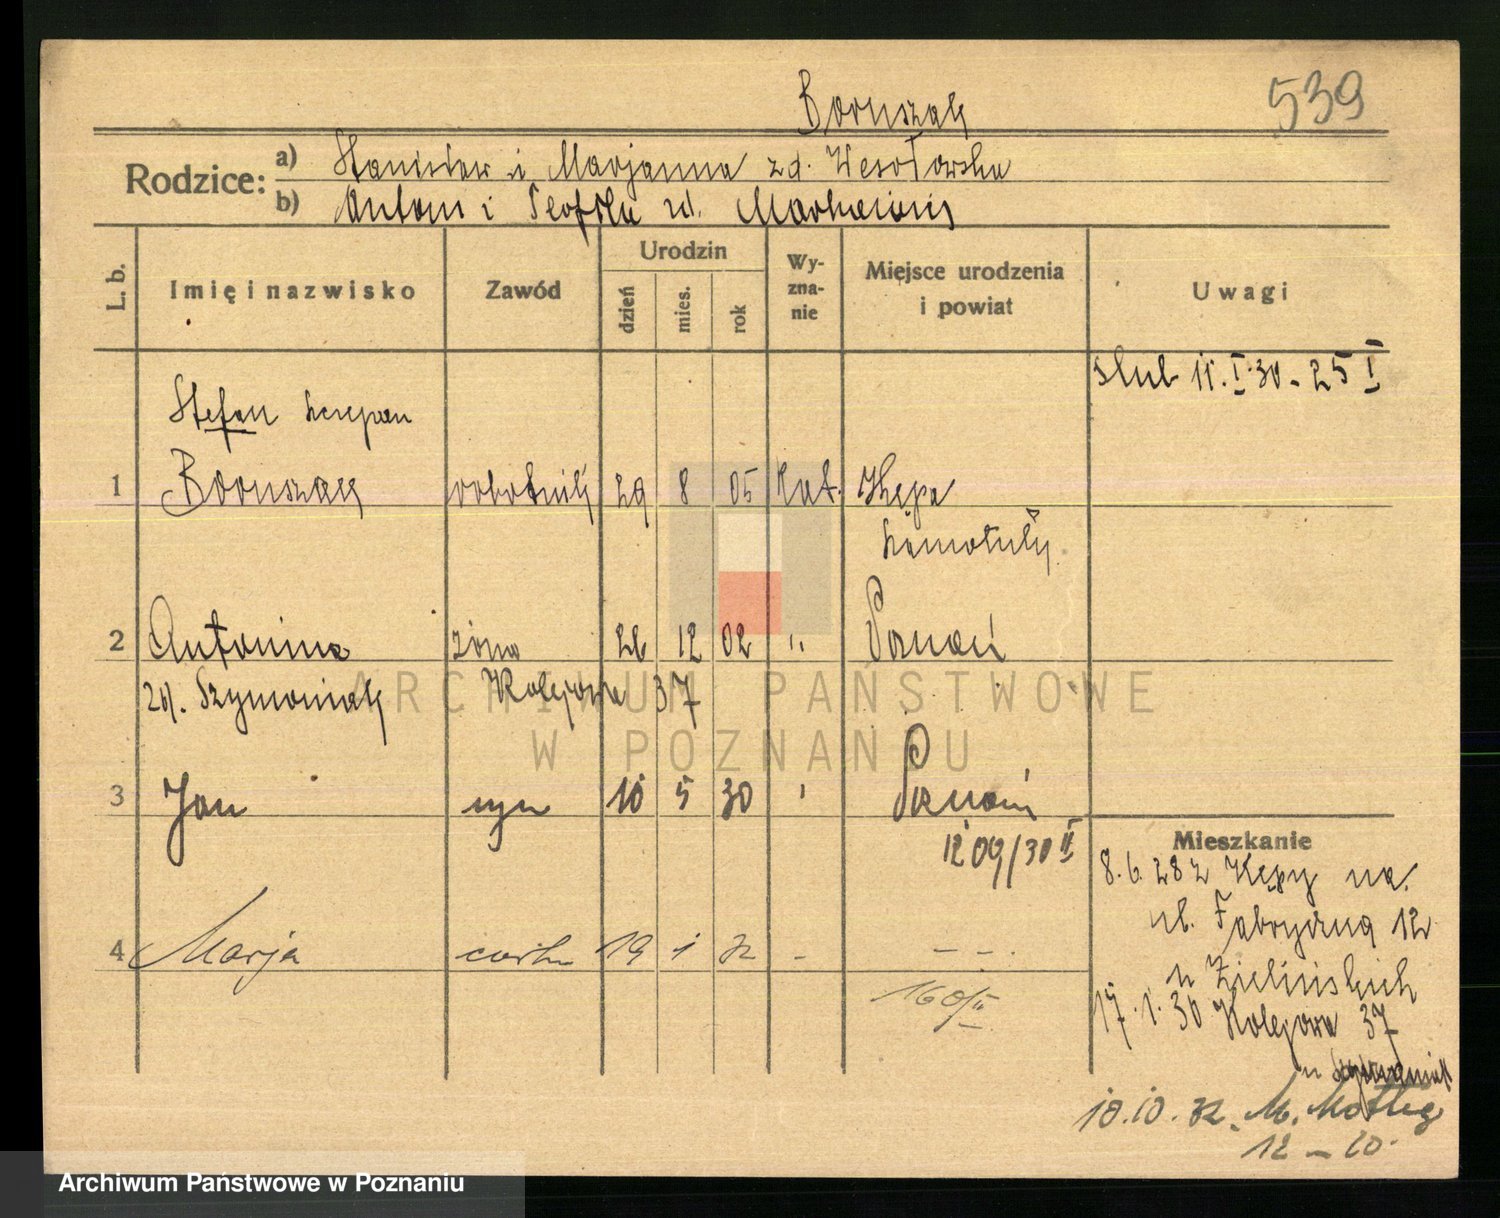 Boruszak
539
Rodzice: a) Stanisław i Marjanna zd. Wesołowska
b) Antoni i Teofila zd.
L. b.
Imię i nazwisko
Zawód
Urodzin
dzień
mies.
rok
Wy-
zna-
nie
Miejsce urodzenia
i powiat
Uwagi
ślub 11. I. 30 - 25 I
Stefan Szczepan
1 Boruszak robotnik 29 8 05 kat. Kępa
Szamotuły
2 Antonina żona 26 12 02 " Poznań
zd. Szymoniak Kolejowa 37
3 Jan syn 10 5 30 " Poznań
1209/30 II
4 Marja córka 19 1 32 - - -
160/II
Mieszkanie
8.6.28 z Kępy na
ul. Fabryczną 12
u Zielińskich
17.1.30 Kolejowa 37
u Szymoniak
18.10.32. M. Mottego
12 - 20.
ARCHIWUM PAŃSTWOWE
W POZNANIU
Archiwum Państwowe w Poznaniu